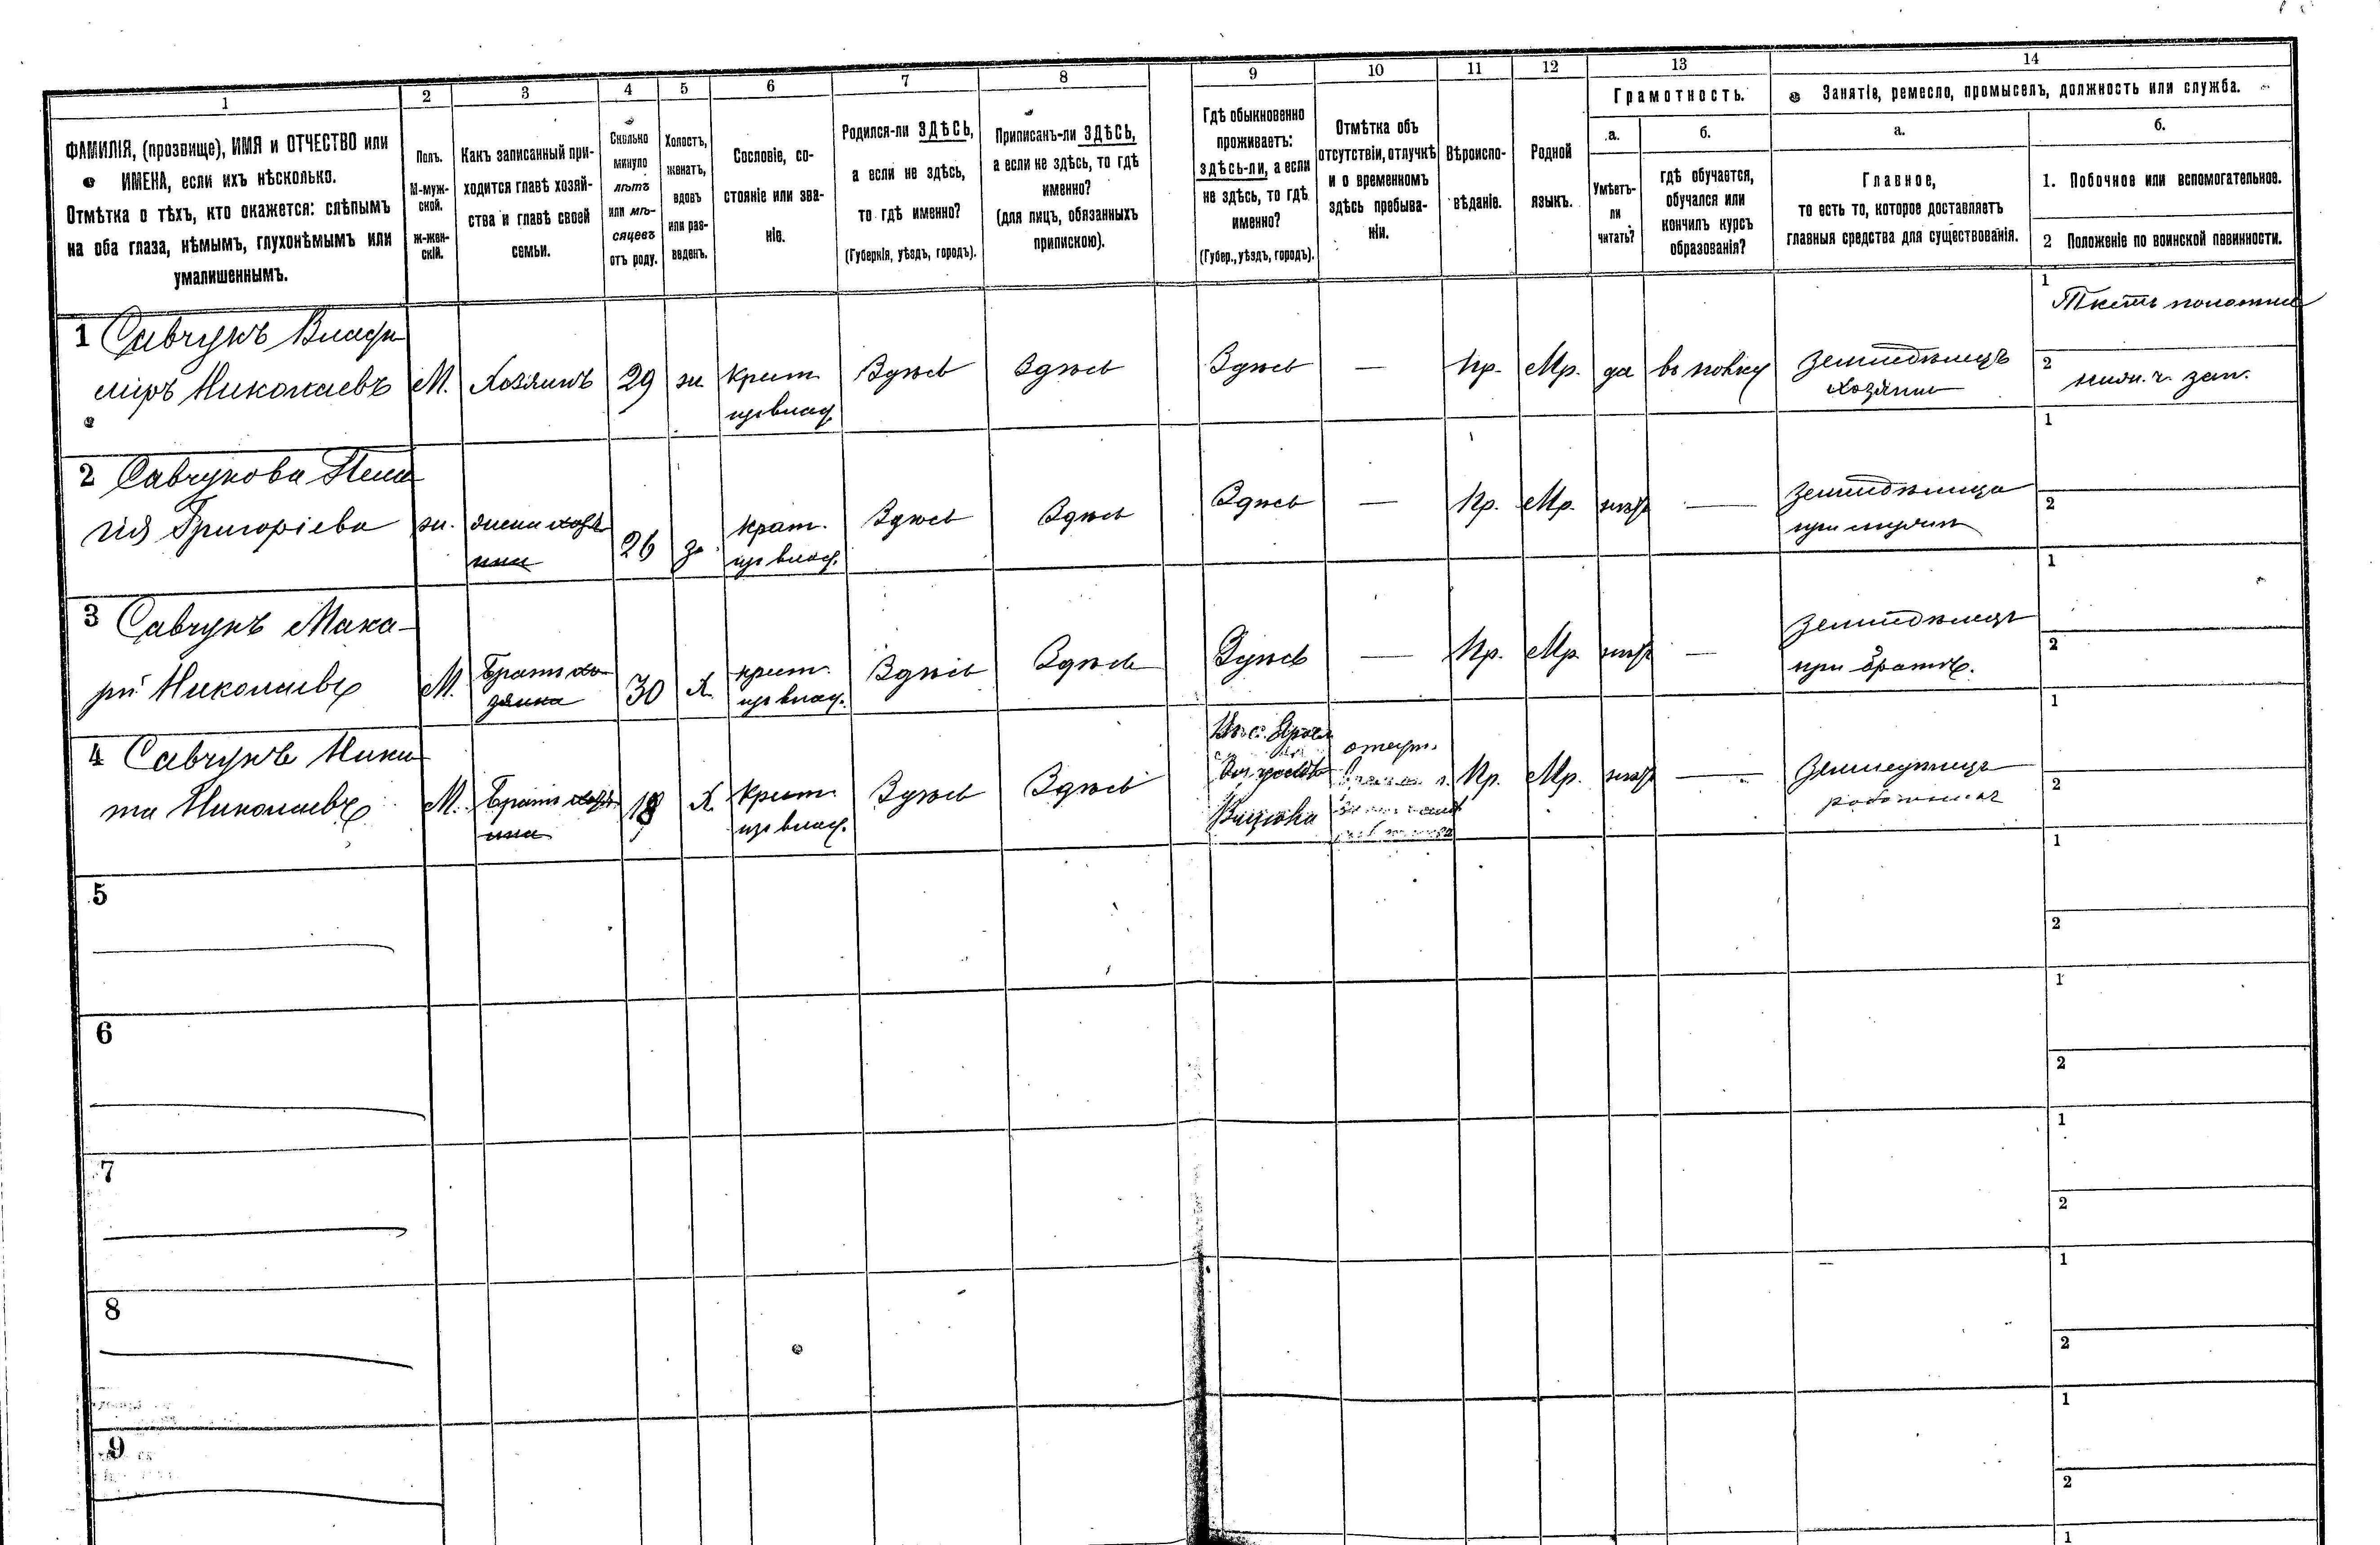 1 2 3 4 5 6 7 8 9 10 11 12 13 14
ФАМИЛІЯ, (прозвище), ИМЯ и ОТЧЕСТВО или
ИМЕНА, если ихъ нѣсколько.
Отмѣтка о тѣхъ, кто окажется: слѣпымъ
на оба глаза, нѣмымъ, глухонѣмымъ или
умалишеннымъ.
Полъ.
М-муж-
ской.
ж-жен-
скій.
Какъ записанный при-
ходится главѣ хозяй-
ства и главѣ своей
семьи.
Сколько
минуло
лѣтъ
или мѣ-
сяцевъ
отъ роду.
Холостъ,
женатъ,
вдовъ
или раз-
веденъ.
Сословіе, со-
стояніе или зва-
ніе.
Родился-ли ЗДѢСЬ,
а если не здѣсь,
то гдѣ именно?
(Губернія, уѣздъ, городъ).
Приписанъ-ли ЗДѢСЬ,
а если не здѣсь, то гдѣ
именно?
(для лицъ, обязанныхъ
припискою).
Гдѣ обыкновенно
проживаетъ:
здѣсь-ли, а если
не здѣсь, то гдѣ
именно?
(Губер., уѣздъ, городъ).
Отмѣтка объ
отсутствіи, отлучкѣ
и о временномъ
здѣсь пребыва-
ніи.
Вѣроиспо-
вѣданіе.
Родной
языкъ.
Грамотность.
а.
Умѣетъ-
ли
читать?
б.
гдѣ обучается,
обучался или
кончилъ курсъ
образованія?
Занятіе, ремесло, промыселъ, должность или служба.
а.
Главное,
то есть то, которое доставляетъ
главныя средства для существованія.
б.
1. Побочное или вспомогательное.
2 Положеніе по воинской повинности.
1 Савчукъ Влади
міръ Николаевъ
М.
Хозяинъ
29
ж
крест.
изъ влад.
Здѣсь
Здѣсь
Здѣсь
—
Пр.
Мр.
да
въ полку
земледѣлецъ
хозяинъ
1
2
нижн. ч. зап.
2 Савчукова Пела
гія Григоріева
ж.
жена хозя
ина
26
з.
крест.
изъ влад.
Здѣсь
Здѣсь
Здѣсь
—
Пр.
Мр.
—
земледѣлица
при мужѣ
1
2
3 Савчукъ Мака-
рій Николаевъ
М.
Братъ хо
зяина
30
Х.
крест.
изъ влад.
Здѣсь
Здѣсь
Здѣсь
—
Пр.
Мр.
—
земледѣлецъ
при братѣ.
1
2
4 Савчукъ Ники
та Николаевъ
М.
Братъ хозя
ина
18
Х.
Крест.
изъ влад.
Здѣсь
Здѣсь
Пр.
Мр.
—
Земледѣлецъ
работникъ
1
2
5
1
2
6
1
2
7
1
2
8
1
2
9
1
2
1